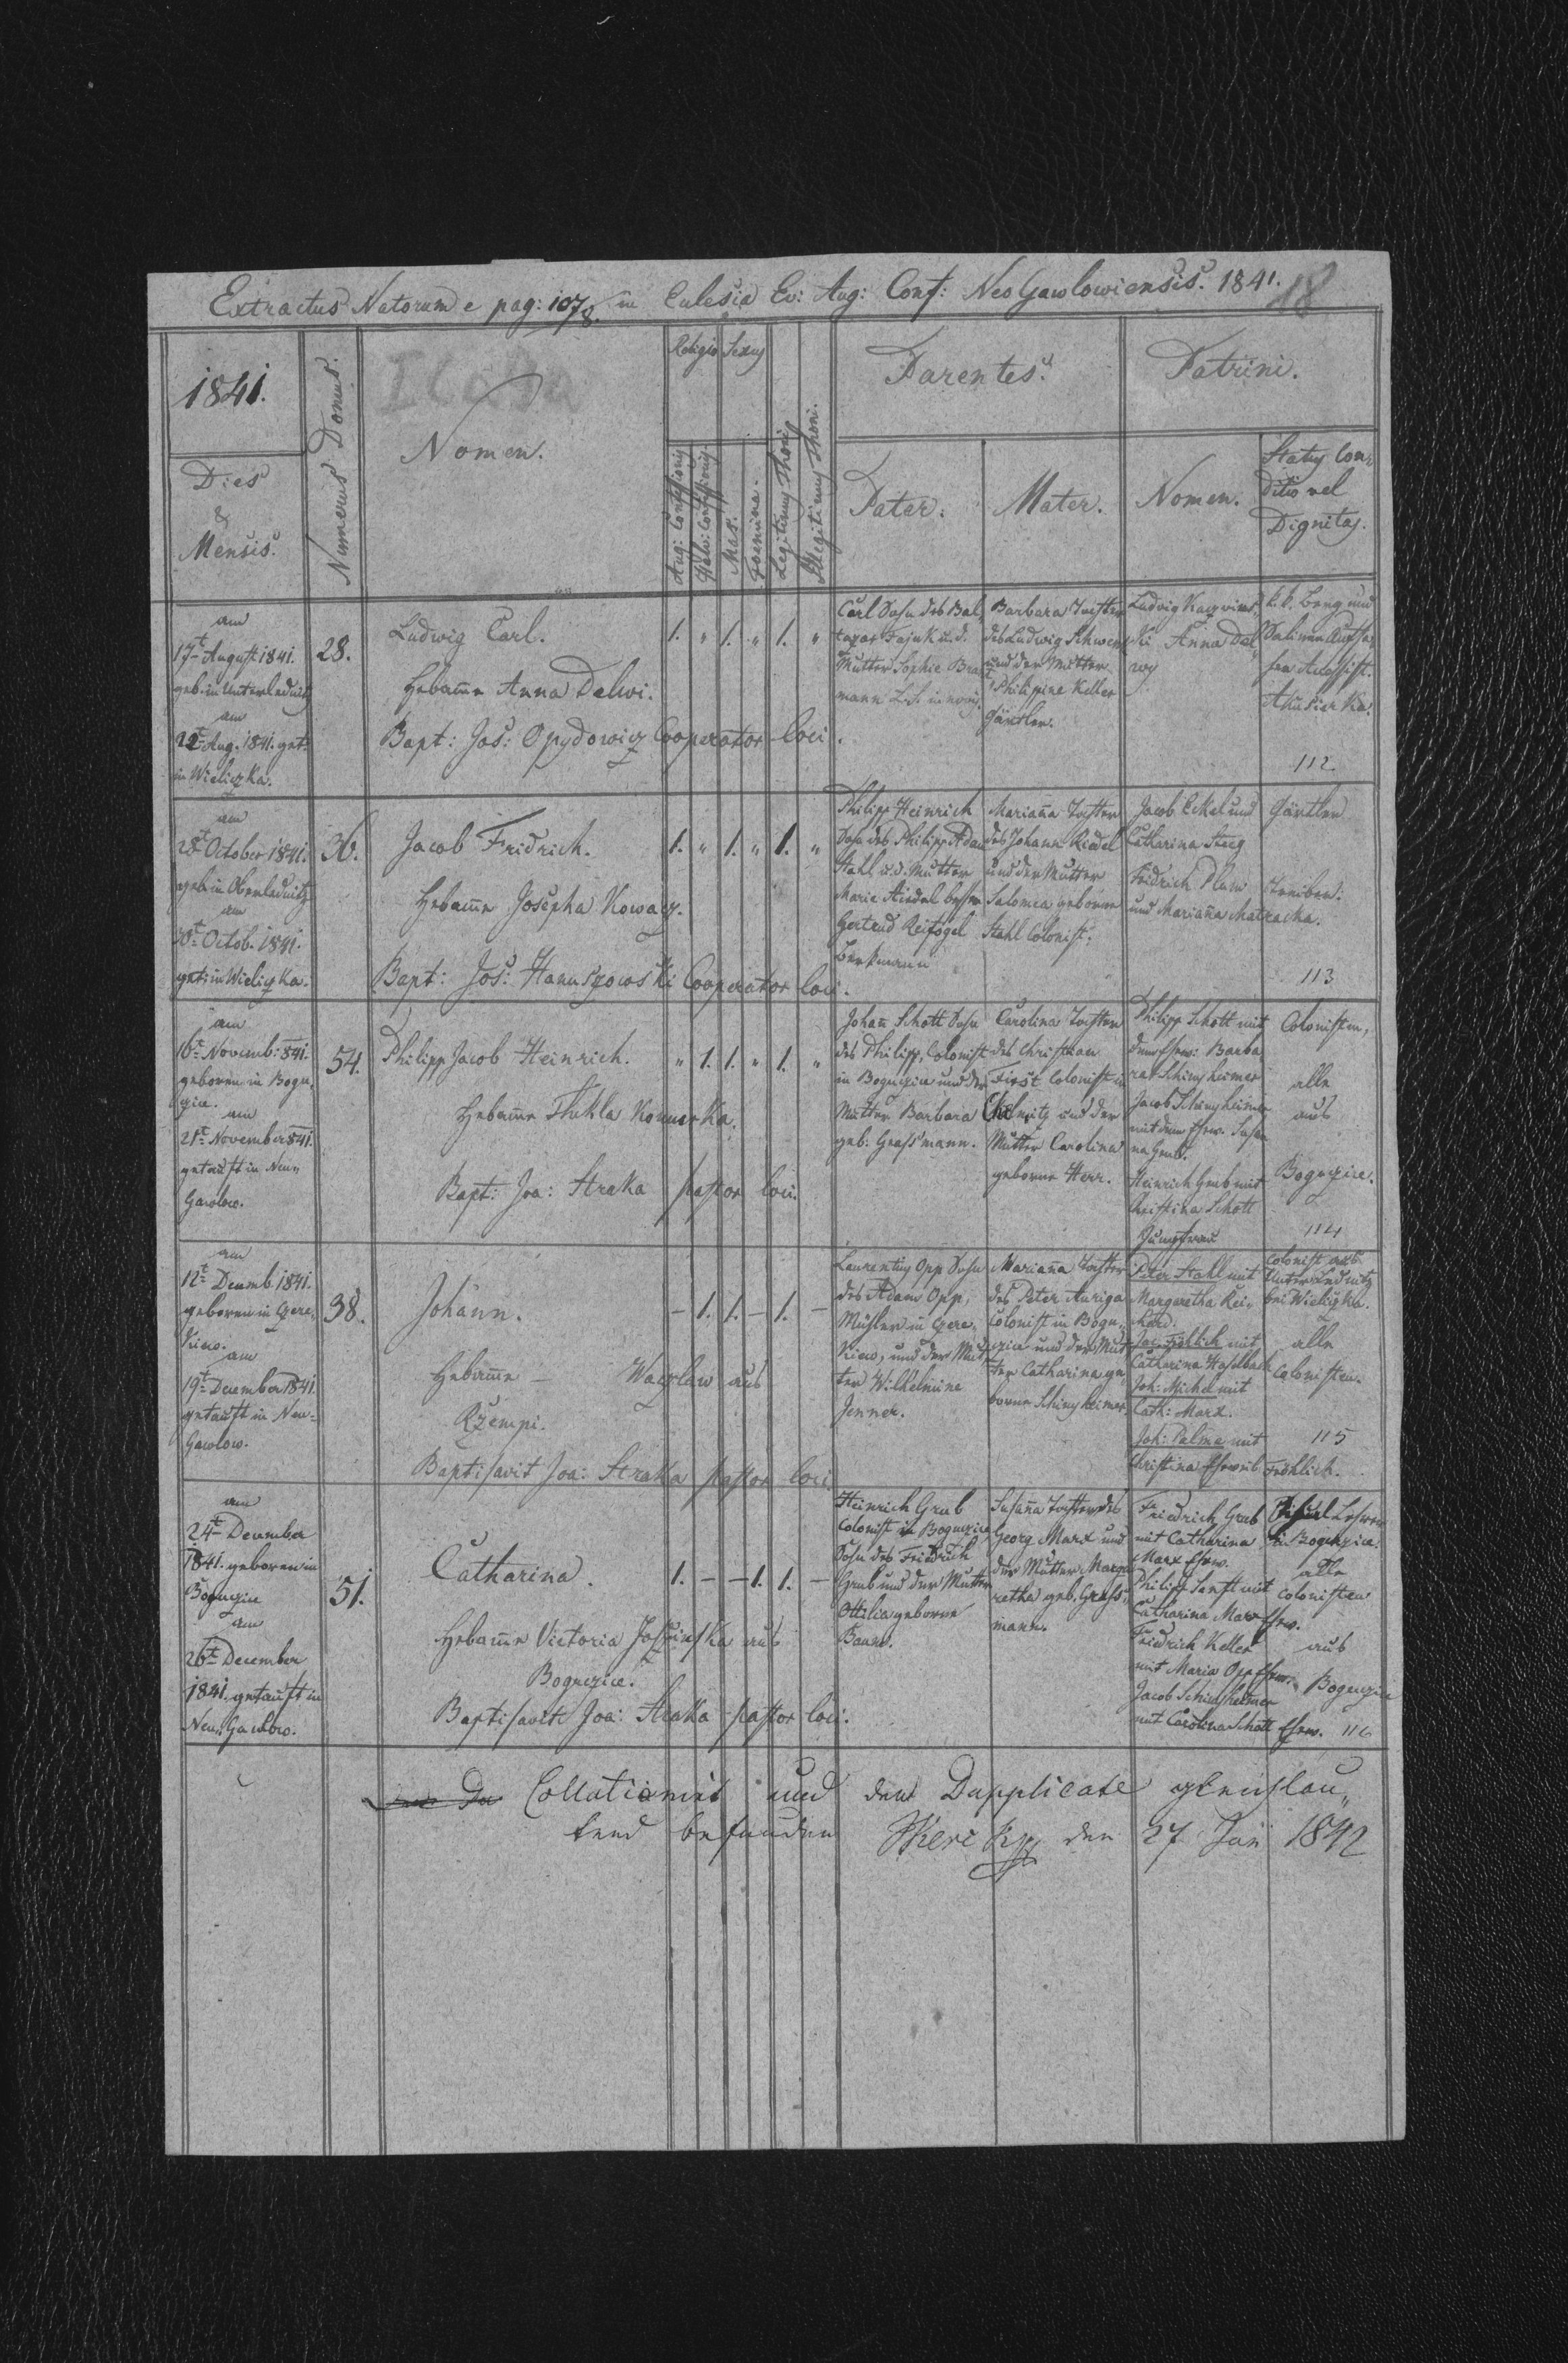 Extractus Natorum e pag: 107/8. in Eulesia Ev: Aug: Conf: NeoGawlowiensis. 1841.
18
1841.
Dies
&
Mensis.
Numerus Domus.
Nomen.
Religio
Sexus
Aug: Confessionis
Helv: Confessionis
Mas.
Foemina.
Legitimus Thori
Illegitimus Thori.
Parentes.
Pater.
Mater.
Patrini.
Nomen.
Status Con„
ditio vel
Dignitas.
am
17t August 1841.
geb: in Unterlednitz
am
22t Aug. 1841. get:
in Wieliczka.
28.
Ludwig Carl.
Hebam̃e Anna Delwi.
Bapt: Jos: Opydowicz Cooperator loci.
1. „ 1. „ 1. „
Carl Sohn des Bal„
tazar Fajnk u. d.
Mutter Sophie
mann
Barbara Tochter
des Ludwig Schwenk
und der Mutter
Philippine Keller
Gärtler.
Ludwig
ski Anna Del„
wy
k. k. Berg und
112
am
28t October 1841.
geb: in Oberlednitz
am
30t Octob. 1841.
get: in Wieliczka.
36.
Jacob Fridrich.
Hebam̃e Josepha Kowacz.
Bapt: Jos: Hanuszowski Cooperator loci.
1. „ 1. „ 1. „
Philipp Heinrich
Sohn des Philipp Adam
Stahl u. d. Mutter
Marie
Gertrud Reifogel
Berkmann
Mariañа Tochter
des Johann Riedel
und der Mutter
Salomea geborne
Stahl Colonist.
Jacob Eckel und
Catharina Steeg
Fridrich Plum
und Mariaña Matracka.
Gärtler
Schreiber.
113
am
16t Novemb: 841.
geboren in Bogu„
cice.
am
21t November 841.
getauft in Neu„
Gawlow.
54.
Philipp Jacob Heinrich.
Hebam̃e Thekla Komerka.
Bapt: Joa: Straka pastor loci.
„ 1. 1. „ 1. „
Johañ Schott Sohn
des Philipp, Colonist
in Bogucice und der
Mutter Barbara
geb: Grassmann.
Carolina Tochter
des Christian
First Colonist in
und der
Mutter Carolina
geborne Herr.
Philipp Schott mit
dem Ehew: Barba
ra Schingheimer
Jacob Schingheimer
mit dem Ehew. Susan
na Grub.
Heinrich Grub mit
Christina Schott
Jungfrau
Colonisten,
alle
aus
Bogucice.
114
am
12t Decemb. 1841.
geboren in Gere„
kiew.
am
19t December 1841.
getauft in Neu-
Gawlow.
38.
Johann.
Hebam̃e — Waczlaw aus
Rzempi.
Baptisavit Joa: Straka pastor loci.
– 1. 1. – 1. –
Laurentius Opp Sohn
des Adam Opp,
Mühler in Gere„
kiew, und der Mut
ter Wilhelmine
Jenner.
Mariaña Tochter
des Peter Auriga
Colonist in Bogu„
cice und der Mut
ter Catharina ge
borne Schingheimer.
Peter Stahl mit
Margaretha Rei„
hard.
Jac: Fröhlich mit
Catharina Haselbach
Joh: Michel mit
Cath: Marx.
Joh: Palme mit
Christina Eheweib Fröhlich.
Colonist aus
Unterlednitz
bei Wieliczka.
alle
Colonisten.
115
am
24t December
1841. geboren in
Bogucice
am
26t December
1841. getauft in
Neu„Gawlow.
51.
Catharina.
Hebam̃e Victoria aus
Bogucice.
Baptisavit Joa: Straka pastor loci.
1. – – 1. 1. –
Heinrich Grub
Colonist in Bogucice
Sohn des Friedrich
Grub und der Mutter
Ottilia geborne
Baum.
Susaña Tochter des
Georg Marx und
der Mutter Marga
retha geb. Grass„
mann.
Friedrich Grub
mit Catharina
Marx Ehew.
Philipp Senft mit
Catharina Marx Ehew.
Friedrich Keller
mit Maria Opp Ehew.
Jacob Schingheimer
mit Carolina Schott Ehew.
in Bogucice.
alle
Colonisten
aus
Bogucice
116
Collationirt und dem Dupplicate gleichlau„
tend befunden den 27 Jan 1842